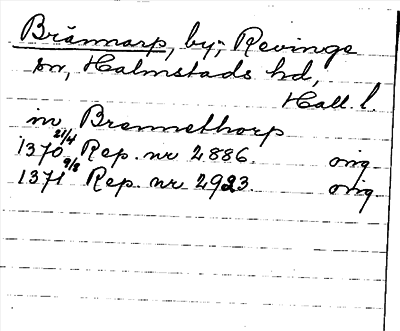 Brännarp, by; Revinge
sn, Halmstads hd,
Hall. l.
in Brennethorp
1370 21/4 Rep. nr 2886. orig
1371 9/8 Rep. nr 2923. orig